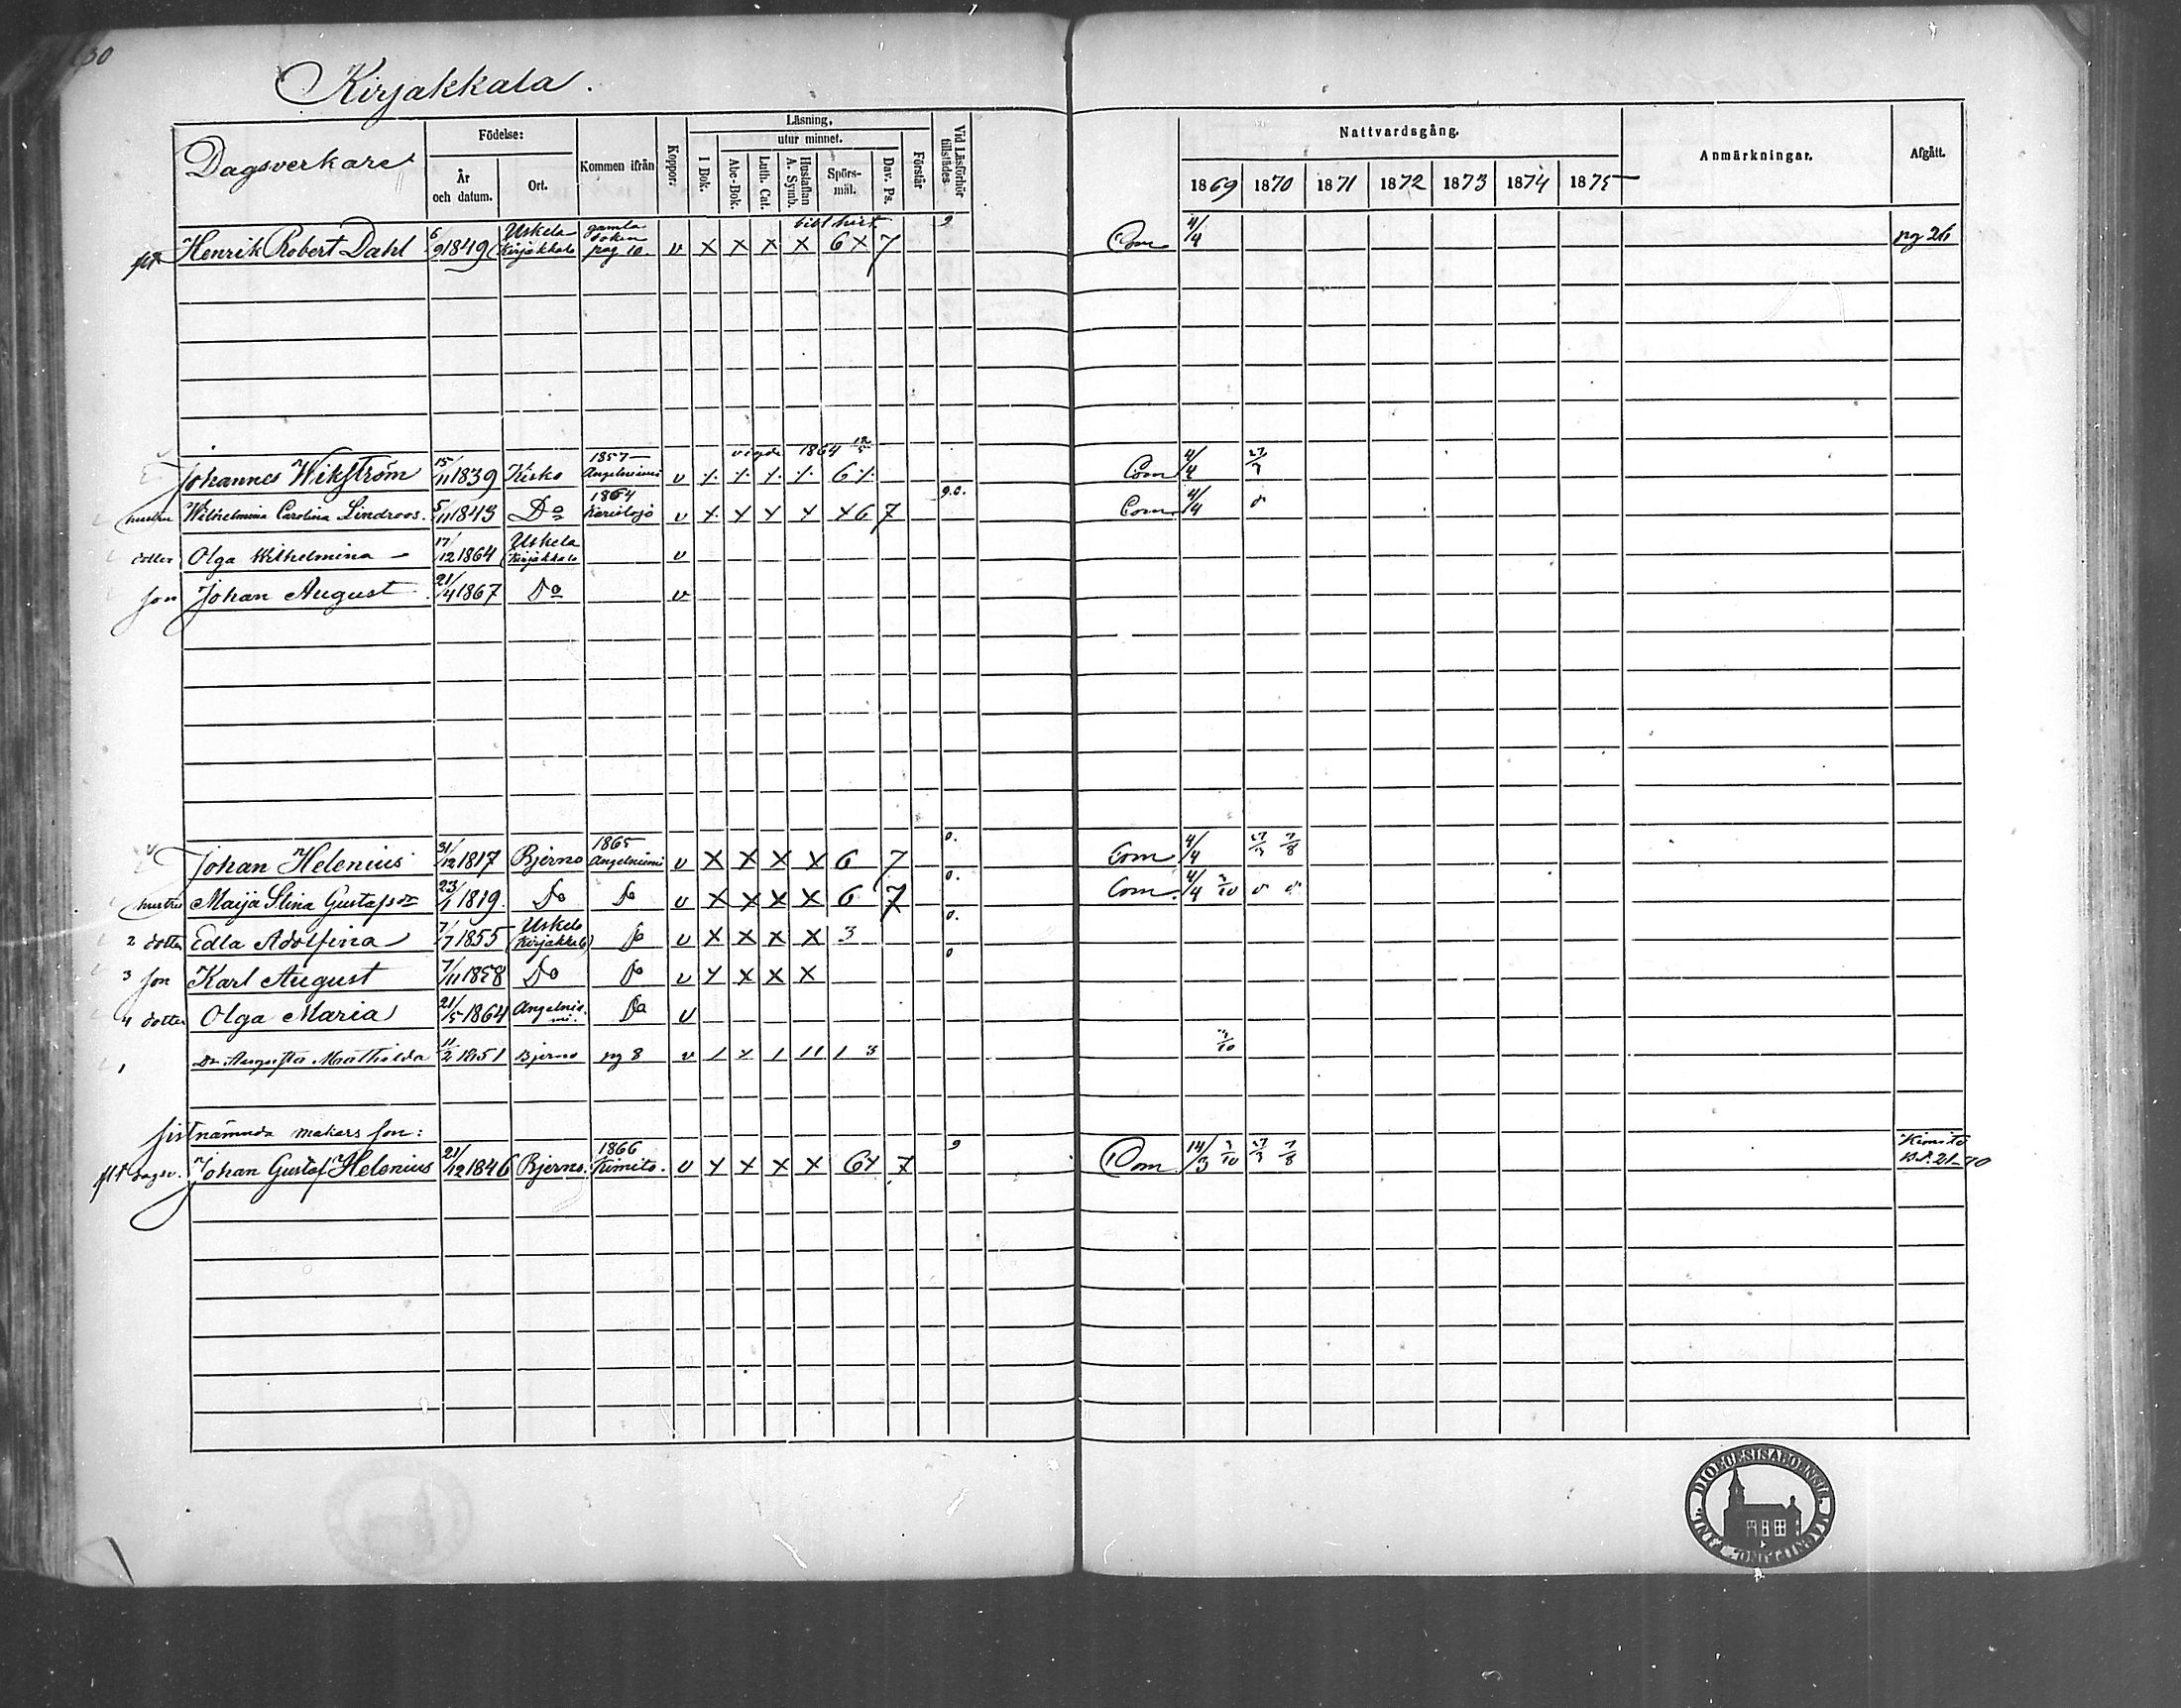 30
Kirjakkala.
Dagsverkare
Födelse:
År och datum.
Ort.
Kommen ifrån
Koppor.
Läsning,
utur minnet.
I Bok.
Abc-Bok.
Luth. Cat.
Hustaflan A. Symb.
Spörs-mål.
Dav. Ps.
Förstår
Vid Läsförhör tillstädes.
Nattvardsgång.
1869 1870 1871 1872 1873 1874 1875
Anmärkningar.
Afgått.
flt Henrik Robert Dahl 6/9 1849 Uskela (Kirjakkala gamla boken pag 10. v X X X X bibl hist 6 X 7 9 Com 4/4 pg 26
vigde 1864 12/5
Johannes Wikström 15/11 1839 Kisko 1857 Angelniemi v 6 Com 4/4 27/3
hustru Wilhelmina Carolina Lindroos. 5/11 1843 Do 1864 Karislojo v X X X X X 6 7 9.0. Com 4/4 0
dotter Olga Wilhelmina 17/12 1864 Uskela (Kirjakkala v
son Johan August 21/4 1867 Do v
Johan Helenius 31/12 1817 Bjerno 1865 Angelniemi v X X X X 6 7 0. Com 4/4 27/3 7/8
hustru Maija Stina Gustafsdr 23/1 1819. Do Do v X X X X 6 7 0. Com. 4/4 3/10 0 0
2 dotter Edla Adolfina 7/7 1855 Uskela (Kirjakkala) Do v X X X X 3 0.
3 son Karl August 7/11 1858 Do Do v X X X X 0
4 dotter Olga Maria 21/5 1864 Angelniemi. Do v
1 Dr Augusta Mathilda 11/2 1851 Bjerno pg 8 v 1 x 1 11 1 3 3/10
sistnämnda makars son:
flt dagsv. Johan Gustaf Helenius 21/12 1846 Bjerno. 1866 Kimito. v X X X X 6 X 7 9 Com 14/3 3/10 27/3 7/8 Kimito Bet. 21-70